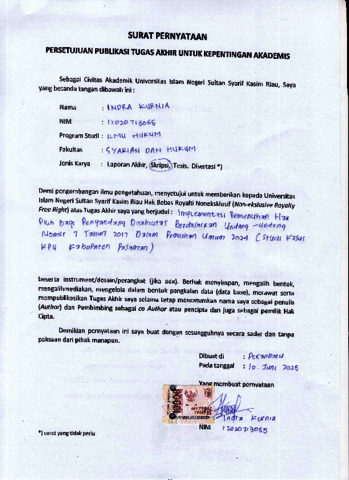 SURAT PERNYATAAN
PERSETUJUAN PUBLIKASI TUGAS AKHIR UNTUK KEPENTINGAN AKADEMIS
Sebagai Civitas Akademik Universitas Islam Negeri Sultan Syarif Kasim Riau, Saya
yang bertanda tangan dibawah ini :
Nama : INDRA KURNIA
NIM : 12020713065
Program Studi : ILMU HUKUM
Fakultas : SYARIAH DAN HUKUM
Jenis Karya : Laporan Akhir, Skripsi, Tesis, Disertasi *)
Demi pengembangan ilmu pengetahuan, menyetujui untuk memberikan kepada Universitas
Islam Negeri Sultan Syarif Kasim Riau Hak Bebas Royalti Noneksklusif (Non-ekslusive Royalty
Free Right) atas Tugas Akhir saya yang berjudul : Implementasi Pemenuhan Hak
Pilih Bagi Penyandang Disabilitas Berdasarkan Undang-undang
Nomor 7 Tahun 2017 Dalam Pemilihan Umum 2024 (Studi Kasus
KPU Kabupaten Pelalawan)
beserta instrument/desain/perangkat (jika ada). Berhak menyimpan, mengalih bentuk,
mengalihmediakan, mengelola dalam bentuk pangkalan data (data base), merawat serta
mempublikasikan Tugas Akhir saya selama tetap mencantumkan nama saya sebagai penulis
(Author) dan Pembimbing sebagai co Author atau pencipta dan juga sebagai pemilik Hak
Cipta.
Demikian pernyataan ini saya buat dengan sesungguhnya secara sadar dan tanpa
paksaan dari pihak manapun.
Dibuat di : Pekanbaru
Pada tanggal : 10 Juni 2025
Yang membuat pernyataan
METERAI
TEMPEL
Indra Kurnia
NIM 12020713065
*) coret yang tidak perlu